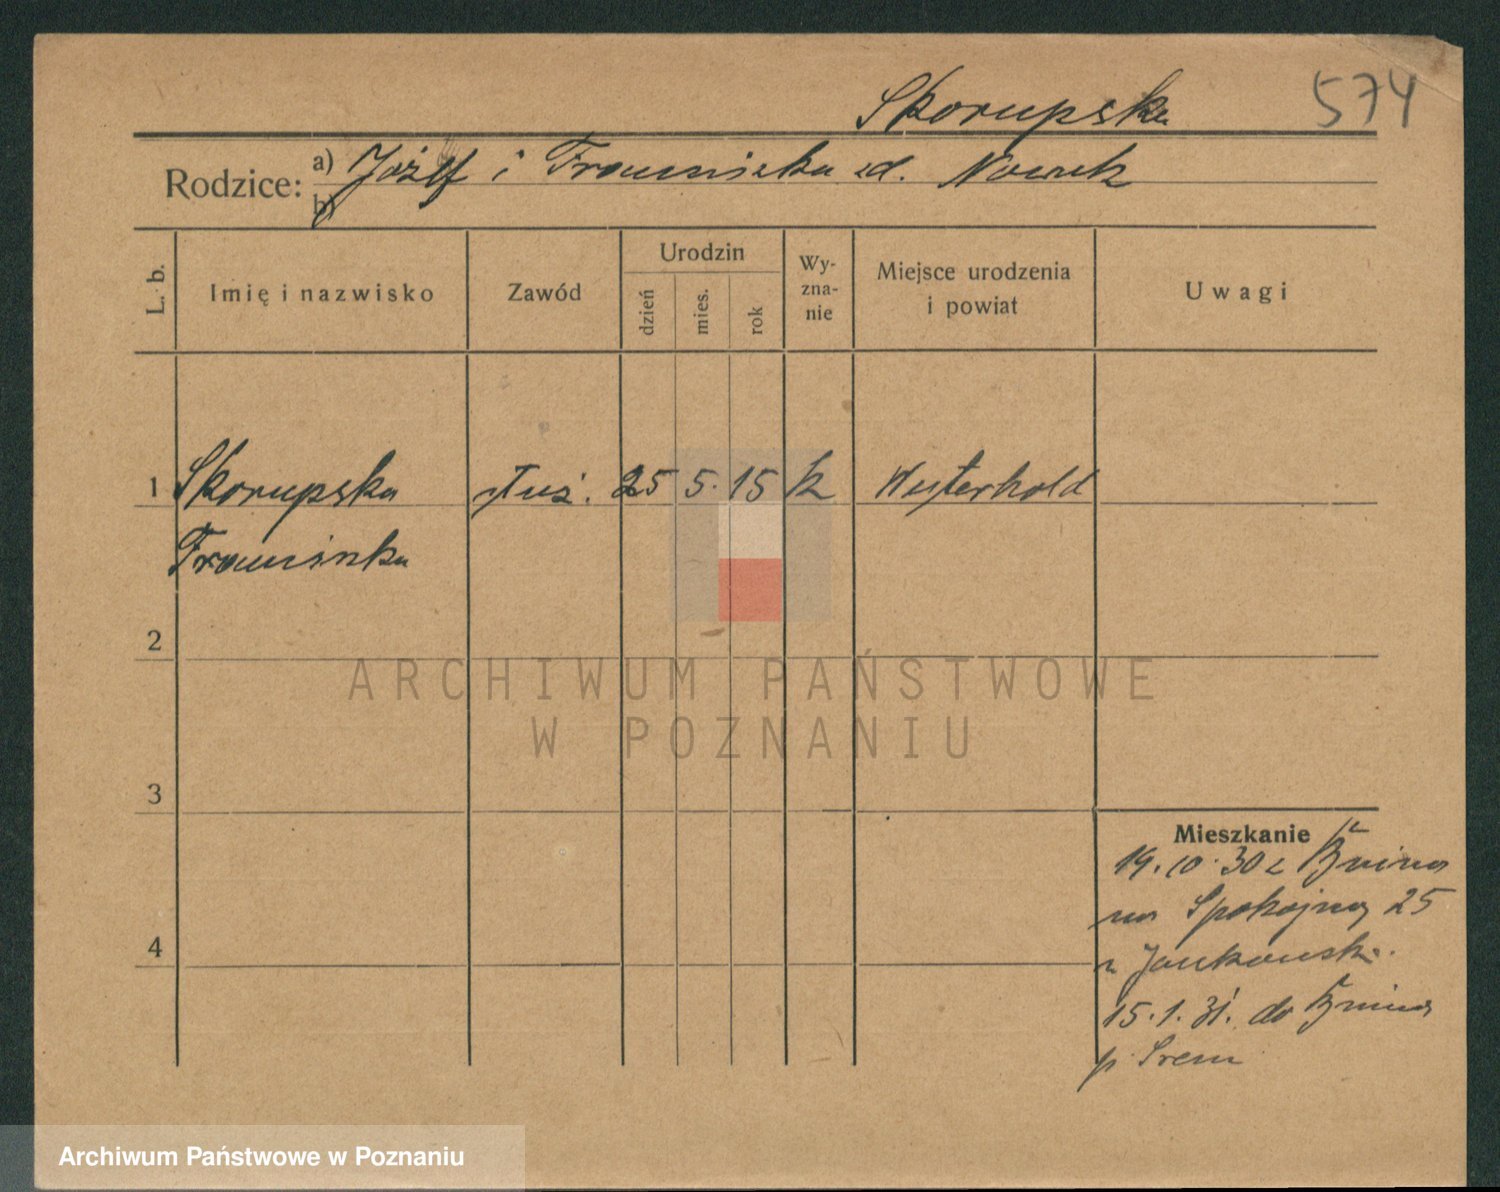 Skorupska 574
Rodzice: a) Józef i Franciszka zd. Nowak
b)
L. b. Imię i nazwisko Zawód Urodzin dzień mies. rok Wy-zna-nie Miejsce urodzenia i powiat Uwagi
1 Skorupska służ. 25 5. 15 k Westerhold
Franciszka
2
ARCHIWUM PAŃSTWOWE
W POZNANIU
3
4
Mieszkanie
14.10.30 z Bnina
na Spokojną 25
u Jankowsk.
15.1.31. do Bnina
p. Śrem
Archiwum Państwowe w Poznaniu